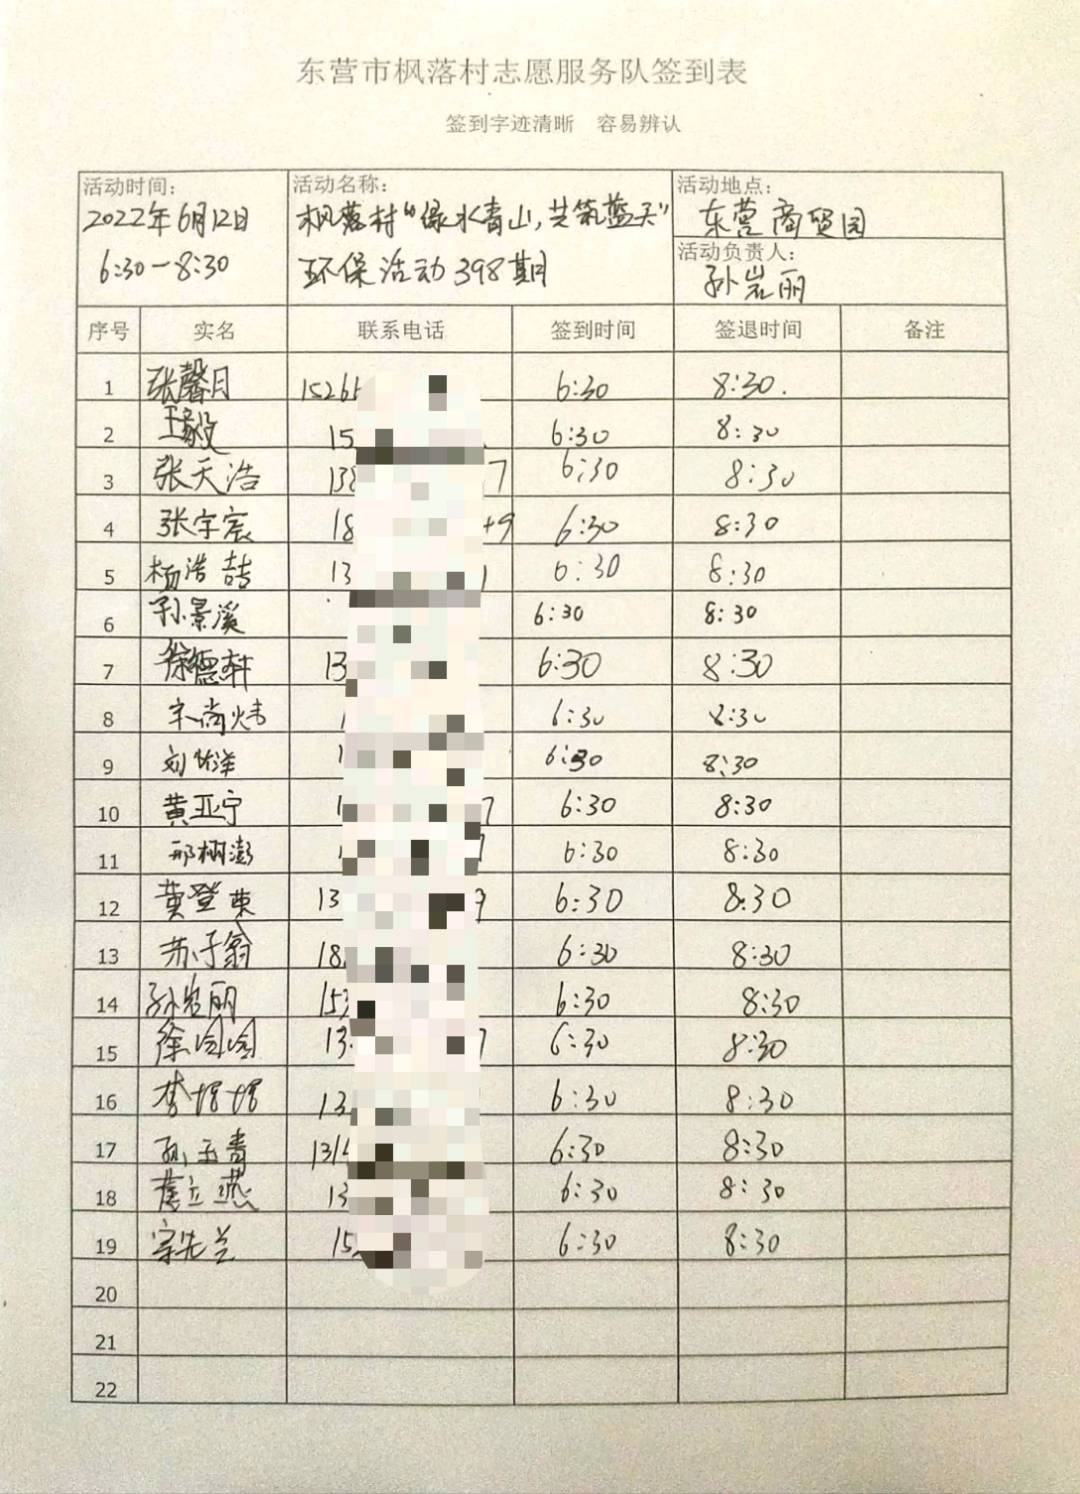 东营市枫落村志愿服务队签到表
签到字迹清晰 容易辨认
活动时间：
2022年6月12日
6:30—8:30
活动名称：
枫落村“绿水青山，共筑蓝天”
环保活动398期
活动地点：
东营商贸园
活动负责人：
孙岩丽
序号 实名 联系电话 签到时间 签退时间 备注
1 张馨月 1526 6:30 8:30.
2 王毅 15 6:30 8:30
3 张天浩 138 7 6:30 8:30
4 张宇宸 18 9 6:30 8:30
5 杨浩喆 13 1 6:30 8:30
6 孙景溪 6:30 8:30
7 徐德轩 13 6:30 8:30
8 宋尚炜 1 6:30 8:30
9 刘 洋 1 6:30 8:30
10 黄亚宁 1 7 6:30 8:30
11 邢树澎 1 7 6:30 8:30
12 黄登 13 9 6:30 8:30
13 苏子翁 18 6:30 8:30
14 孙岩丽 153 6:30 8:30
15 徐 13 7 6:30 8:30
16 李 13 6:30 8:30
17 孙玉青 131 6:30 8:30
18 立燕 13 6:30 8:30
19 宗先兰 15 6:30 8:30
20
21
22